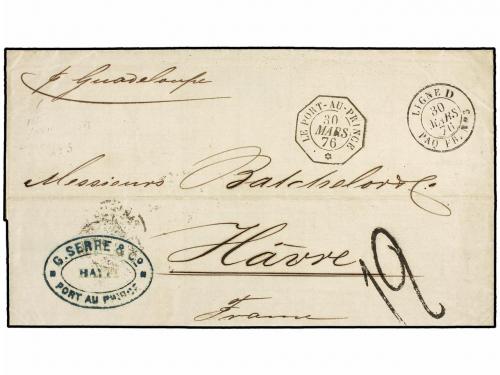 p Guadeloupe
LE PORT-AU-PRINCE
30
MARS
76
LIGNE D
30
MARS
76
PAQ. FR. Nº3
Messieurs Batchelor & Co
Hâvre
France
12
G. SERRE & Cº
HAITI
PORT AU PRINCE